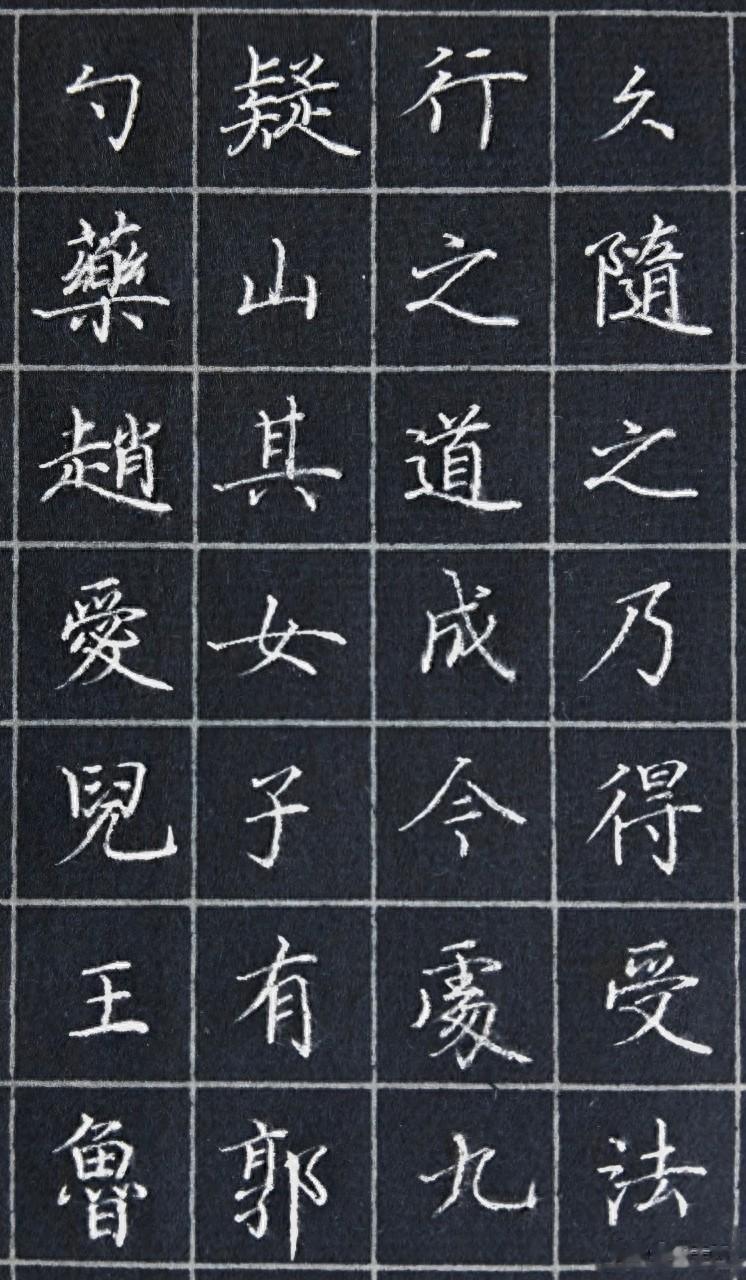 久隨之乃得受法
行之道成今處九
疑山其女子有郭
勺藥趙愛兒王魯